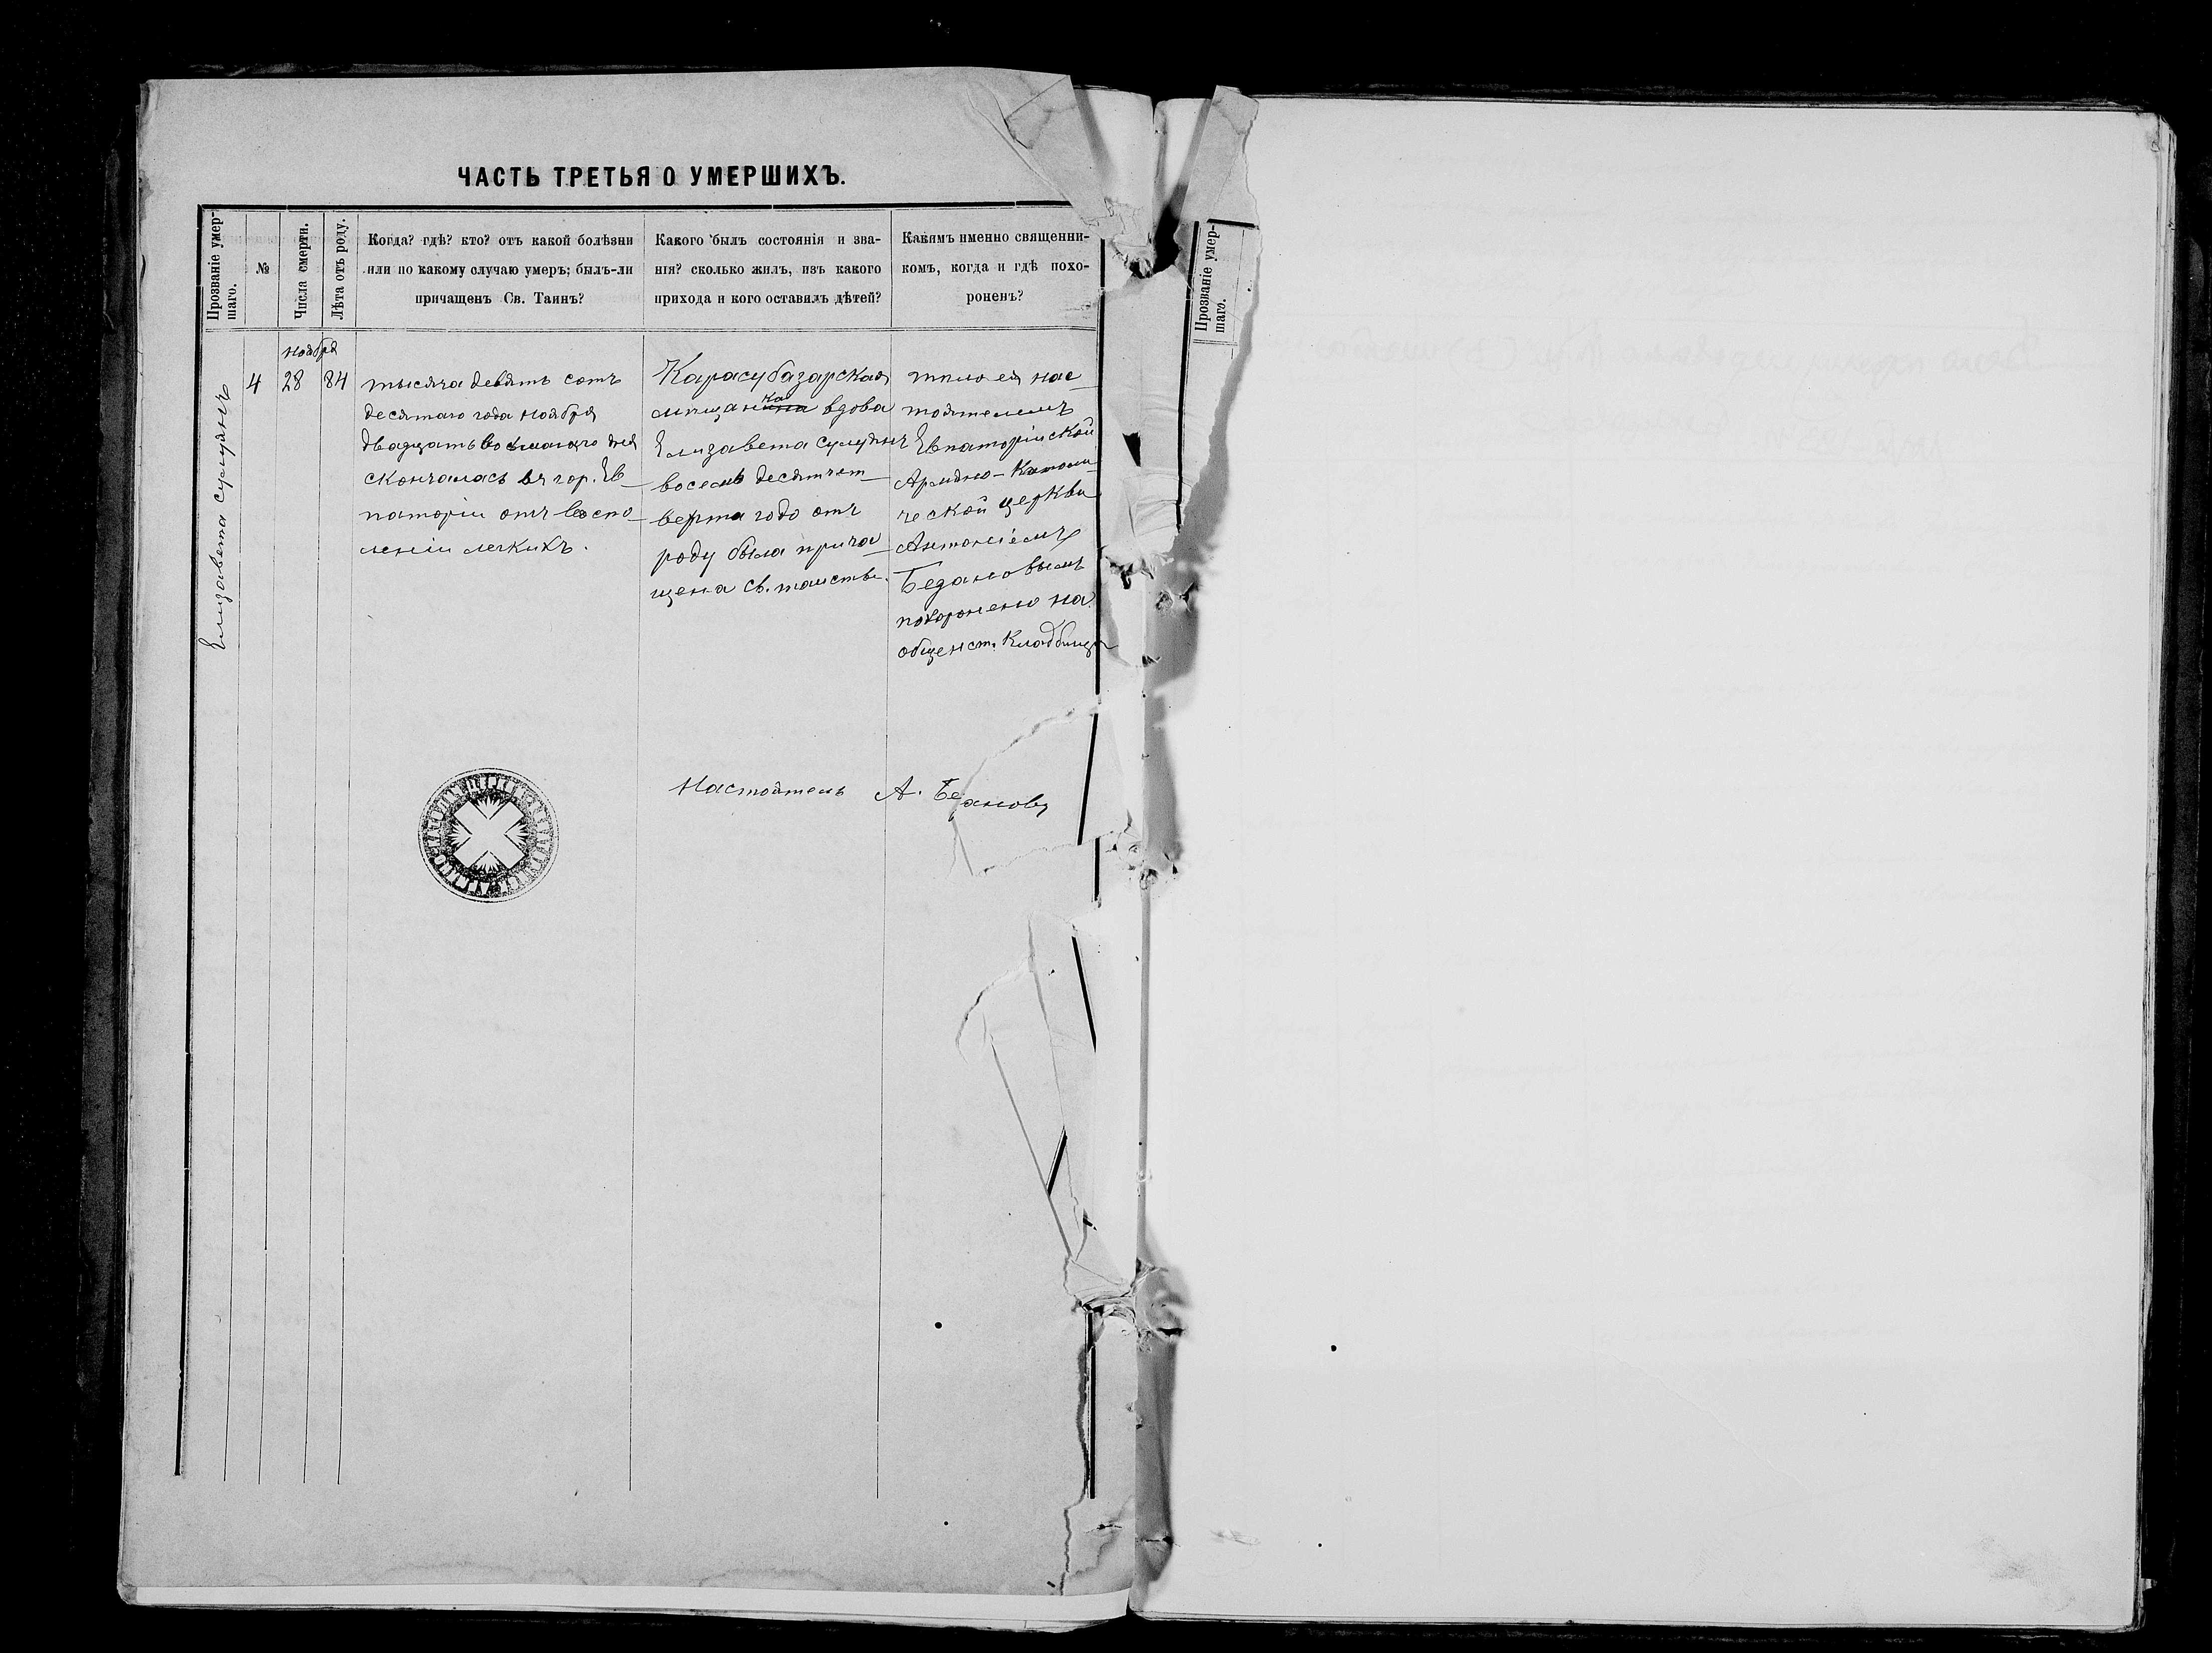 ЧАСТЬ ТРЕТЬЯ О УМЕРШИХЪ.
Прозваніе умер-
шаго.
№
Числа смерти.
Лѣта отъ роду.
Когда? гдѣ? кто? отъ какой болѣзни
или по какому случаю умеръ; былъ-ли
причащенъ Св. Таинъ?
Какого былъ состоянія и зва-
нія? сколько жилъ, изъ какого
прихода и кого оставилъ дѣтей?
Какимъ именно священни-
комъ, когда и гдѣ похо-
роненъ?
Елизавета
4
ноября
28
84
тысяча девять сотъ
десятаго года ноября
двадцать восьмаго дня
скончалась въ гор. Ев-
паторіи отъ воспо-
леніи легкихъ.
Карасубазарская
мѣщанка вдова
Елизавета
восемь десят чет-
верта годо отъ
роду была прича-
щена св. таиств.
тѣло ея нас-
тоятелемъ
Евпаторійской
Армяно-Католи-
ческой церкви
Антоніемъ
Бедановымъ
похоронено на
общенст. Кладбищѣ
Настоятель А. Бе ановъ
Прозваніе умер-
шаго.